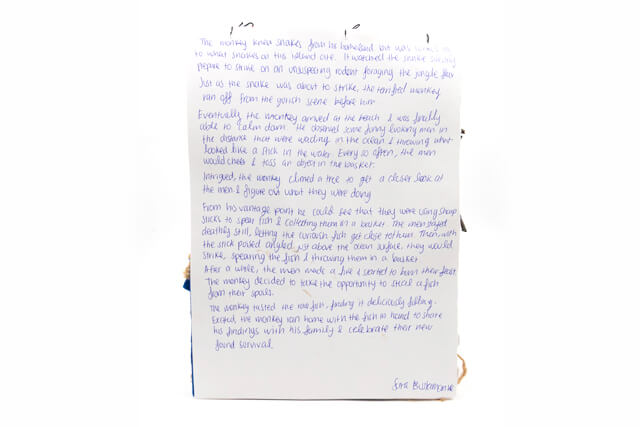 The monkey knew snakes from his homeland but was
to what snakes on this island ate. It watched the snake
prepare to strike on an unsuspecting rodent foraging the jungle floor
Just as the snake was about to strike, the terrified monkey
ran off from the gorish scene before him
Eventually the monkey arrived at the beach & was finally
able to calm down. He observed some funny looking men in
the distance that were wading in the ocean & throwing what
looked like a stick in the water. Every so often, the men
would cheer & toss an object in the basket.
Intrigued, the monkey climed a tree to get a closer look at
the men & figure out what they were doing
From his vantage point he could see that they were using sharp
sticks to spear fish & collecting them in a basket. The men stayed
deathly still, letting the curious fish get close to them. Then, with
the stick poised angled just above the ocean surface, they would
strike, spearing the fish & throwing them in a basket
After a while, the men made a fire & started to burn their feast.
The monkey decided to take the opportunity to steal a fish
from their spoils.
The monkey tasted the raw fish, finding it deliciously filling.
Excited, the monkey ran home with the fish in hand to share
his findings with his family & celebrate their new
found survival.